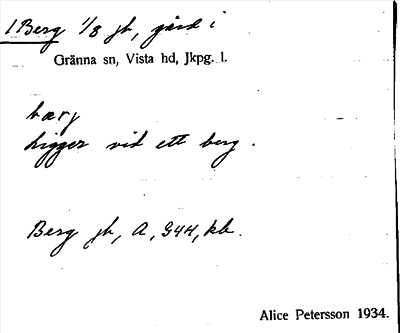 1 Berg 1/8 jb, gård i
Gränna sn, Vista hd, Jkpg. l.
bærj
Ligger vid ett berg.
Berg jb, A, G44, kb.
Alice Petersson 1934.